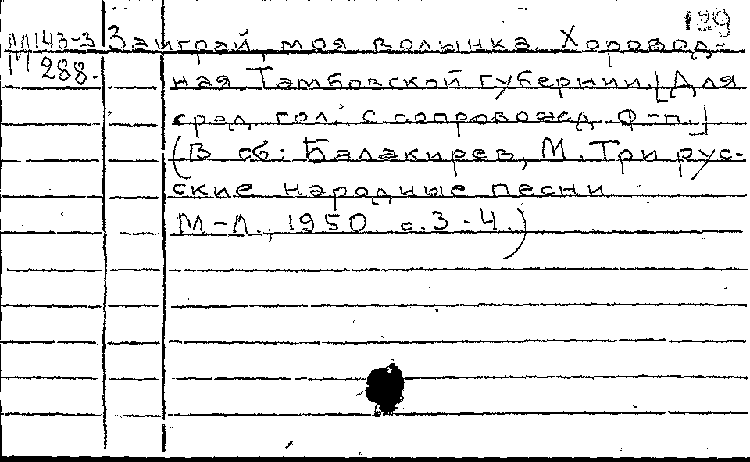 199
М143-3 Заиграй, моя волынка. Хоровод-
М 288. ная Тамбовской губернии. [Для
сред. гол. с сопровожд. ф-п.]
(В сб: Балакирев, М. Три рус-
ские народные песни
М-Л., 1950 с. 3-4.)